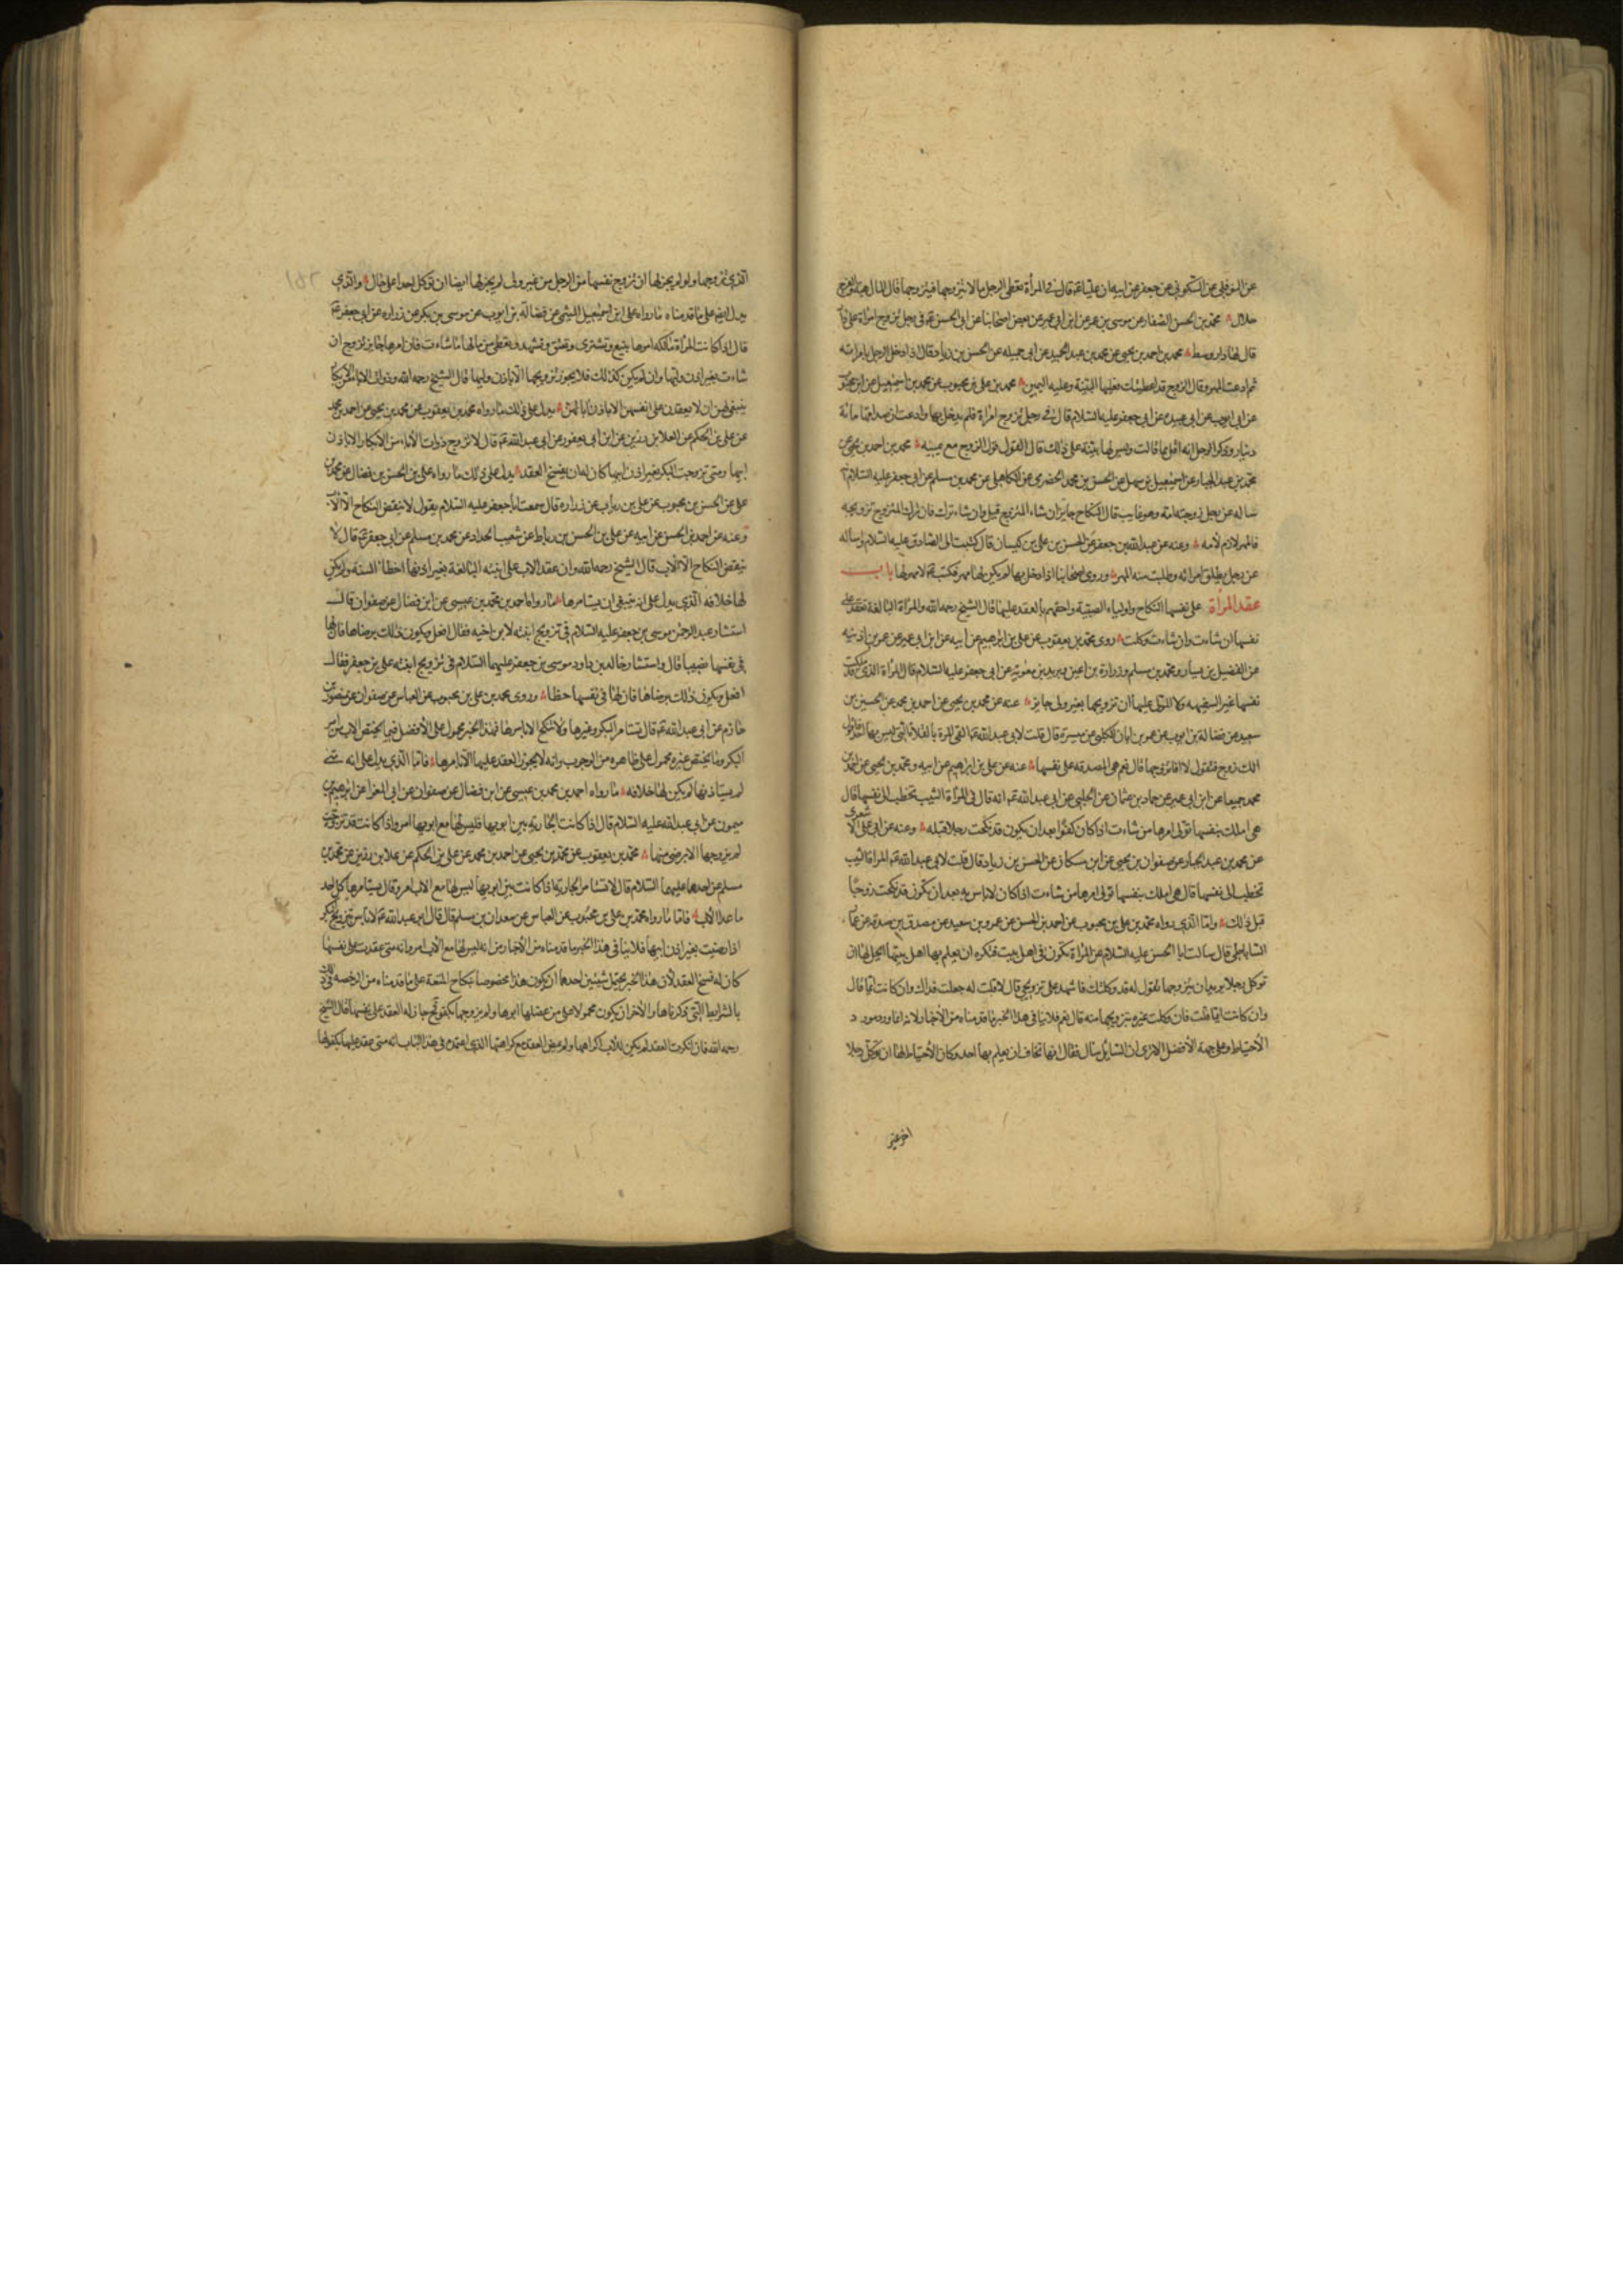 عن النوفلي عن السكوني عن جعفر عن ابيه ان عليا ع قال في المرأة تعطى الرجل مالا يتزوجها فيتزوجها قال المال هبة والفرج
حلال محمد بن الحسن الصفار عن موسى بن عمر عن ابن ابي عمير عن بعض اصحابنا عن ابي الحسن ع في رجل تزوج امراة على دار
قال لها دار وسط محمد بن احمد بن يحيى عن محمد بن عبد الحميد عن ابي جميله عن الحسن بن زياد قال اذا دخل الرجل بامراته
ثم ادعت المهر وقال الزوج قد اعطيتك فعليها البينة وعليه اليمين محمد بن علي بن محبوب عن محمد بن اسمعيل عن ابن محبوب
عن ابي ايوب عن ابي عبيدة عن ابي جعفر عليه السلام قال في رجل تزوج امراة فلم يدخل بها وادعت ان صداقها مائة
دينار وذكر الرجل انه اقل مما قالت وليس لها بينة على ذلك قال القول قول الزوج مع يمينه محمد بن احمد بن يحيى عن
محمد بن عبد الجبار عن اسمعيل بن سهل عن الحسن بن محمد الحضرمي عن الكاهلي عن محمد بن مسلم عن ابي جعفر عليه السلام
ساله عن رجل زوجته امه وهو غايب قال النكاح جايز ان شاء المتزوج قبل وان شاء ترك فان ترك المتزوج تزويجه
فالمهر لازم لأمه وعنه عن عبد الله بن جعفر عن الحسن بن علي بن كيسان قال كتبت الى الصادق عليه السلام اساله
عن رجل يطلق امراته وطلبت منه المهر وروى اصحابنا اذا دخل بها لم يكن لها مهر فكتب ع لا مهر لها باب
عقد المرأة على نفسها النكاح واولياء الصبية واحقهم بالعقد عليها قال الشيخ رحمه الله والمرأة البالغة تعقد على
نفسها ان شاءت وان شاءت وكلت روى محمد بن يعقوب عن علي بن ابرهيم عن أبيه عن ابن ابي عمير عن عمر بن اذينه
عن الفضيل بن يسار ومحمد بن مسلم وزرارة بن اعين وبريد بن معوية عن ابي جعفر عليه السلام قال المرأة الذي قد ملكت
نفسها غير السفيهه ولا المولى عليها ان تزويجها بغير ولى جايز عنه عن محمد بن يحيى عن احمد بن محمد عن الحسين بن
سعيد عن فضالة بن ايوب عن عمر بن ابان الكلبي عن ميسرة قال قلت لابي عبد الله ع القى المرة بالفلاة التي ليس بها احد فاقول
الك زوج فتقول لا فاتزوجها قال نعم هي المصدقه على نفسها عنه عن علي بن ابرهيم عن ابيه ومحمد بن يحيى عن احمد بن
محمد جميعا عن ابن ابي عمير عن حماد بن عثمان عن الحلبي عن ابي عبد الله ع انه قال في المرأة الثيب تخطب الى نفسها قال
هي املك بنفسها تولى امرها من شاءت اذا كان كفوا بعد ان يكون قد نكحت رجلا قبله وعنه عن ابي علي الاشعرى
عن محمد بن عبد الجبار عن صفوان بن يحيى عن ابن مسكان عن الحسن بن زياد قال قلت لابي عبد الله ع المراة الثيب
تخطب الى نفسها قال هي املك بنفسها تولى امرها من شاءت اذا كان لاباس به بعد ان يكون قد نكحت زوجا
قبل ذلك واما الذي رواه محمد بن علي بن محبوب عن احمد بن الحسن عن عمرو بن سعيد عن مصدق بن صدقة عن عمار
الساباطي قال سالت ابا الحسن عليه السلام عن المرأة تكون في اهل بيت فتكره ان يعلم بها اهل بيتها ايحل لها ان
توكل رجلا يريد ان يتزوجها تقول له قد وكلتك فاشهد على تزويجي قال لا قلت له جعلت فداك وان كانت ايما قال
وان كانت ايما قلت فان وكلت غيره بتزويجها منه قال نعم فلا ينافى هذا الخبر ما قدمناه من الأخبار لانه انما ورد مورد
الأحتياط وعلى جهة الأفضل الا ترى ان السايل سال فقال انها تخاف ان يعلم بها احد وكان الأحتياط لها ان توكل رجلا
اخر غير
الذي تزوجها ولو لم يجز لها ان تزوج نفسها من الرجل من غير ولى لم يجز لها ايضا ان توكل احدا على حال والذي
يدل ايضا على ما قدمناه ما رواه علي بن اسمعيل الميثمي عن فضالة بن ايوب عن موسى بن بكر عن زراره عن ابي جعفر ع
قال اذا كانت المرأة مالكه امرها تبيع وتشترى وتعتق وتشهد وتعطى من مالها ما شاءت فان امرها جايز تزوج ان
شاءت بغير اذن وليها وان لم يكن كذلك فلا يجوز تزويجها الا باذن وليها قال الشيخ رحمه الله وذوات الاباء من الابكار
ينبغي لهن ان لا يعقدن على انفسهن الا باذن آبائهن يدل على ذلك ما رواه محمد بن يعقوب عن محمد بن يحيى عن احمد بن محمد
عن علي بن الحكم عن العلا بن رزين عن ابن ابي يعفور عن ابي عبد الله ع قال لا تزوج ذوات الأباء من الأبكار الا باذن
ابيها ومتى تزوجت البكر بغير اذن ابيها كان له ان يفسخ العقد يدل على ذلك ما رواه علي بن الحسن بن فضال عن محمد بن
علي عن الحسن بن محبوب عن علي بن رئاب عن زراره قال سمعت ابا جعفر عليه السلام يقول لا ينقض النكاح الا الاب
وعنه عن احمد بن الحسن عن ابيه عن علي بن الحسن بن رباط عن شعيب الحداد عن محمد بن مسلم عن ابي جعفر ع قال لا
ينقض النكاح الا الأب قال الشيخ رحمه الله وان عقد الاب على ابنته البالغة بغير اذنها اخطا السنة ولم يكن
لها خلافه الذي يدل على انه ينبغي ان يستامرها ما رواه احمد بن محمد بن عيسى عن ابن فضال عن صفوان قال
استشار عبد الرحمن موسى بن جعفر عليه السلام في تزويج ابنته لابن اخيه فقال افعل ويكون ذلك برضاها فان لها
في نفسها نصيبا قال واستشار خالد بن داود موسى بن جعفر عليهما السلام في تزويج ابنته علي بن جعفر فقال
افعل ويكون ذلك برضاها فان لها في نفسها حظا وروى محمد بن علي بن محبوب عن العباس عن صفوان عن منصور بن
حازم عن ابي عبد الله ع قال تستامر البكر وغيرها ولا تنكح الا بامرها فهذا الخبر محمول على الأفضل فيما يختص الاب من امر
البكر وما يختص غيره محمول على ظاهره من الوجوب وانه لا يجوز العقد عليها الا بامرها فاما الذي يدل على انه متى
لم يستاذنها لم يكن لها خلافه ما رواه احمد بن محمد بن عيسى عن ابن فضال عن صفوان عن ابي المغرا عن ابرهيم بن
ميمون عن ابي عبد الله عليه السلام قال اذا كانت الجاريه بين ابويها فليس لها مع ابويها امر واذا كانت قد تزوجت
لم يزوجها الا برضى منها محمد بن يعقوب عن محمد بن يحيى عن احمد بن محمد عن علي بن الحكم عن علا بن رزين عن محمد بن
مسلم عن احدهما عليهما السلام قال لا تستامر الجارية اذا كانت بين ابويها ليس لها مع الاب امر وقال يستامرها كل احد
ما عدا الأب فاما ما رواه محمد بن علي بن محبوب عن العباس عن سعدان بن مسلم قال قال ابو عبد الله ع لا باس بتزويج البكر
اذا رضيت بغير اذن ابيها فلا ينافى هذا الخبر ما قدمناه من الأخبار من انه ليس لها مع الأب امر وانه متى عقدت على نفسها
كان له فسخ العقد لأن هذا الخبر يحتمل شيئين احدهما ان يكون هذا مخصوصا بنكاح المتعة على ما قدمناه من الرخصه في ذلك
بالشرايط التي ذكرناها والأخر ان يكون محمولا على من عضلها ابوها ولم يزوجها بكفو فح جاز له العقد على نفسها قال الشيخ
رحمه الله فان انكرت العقد لم يكن للاب اكراهها ولم يمض العقد مع كراهتها الذي اعتمده في هذا الباب انه متى عقد عليها بكفو لها